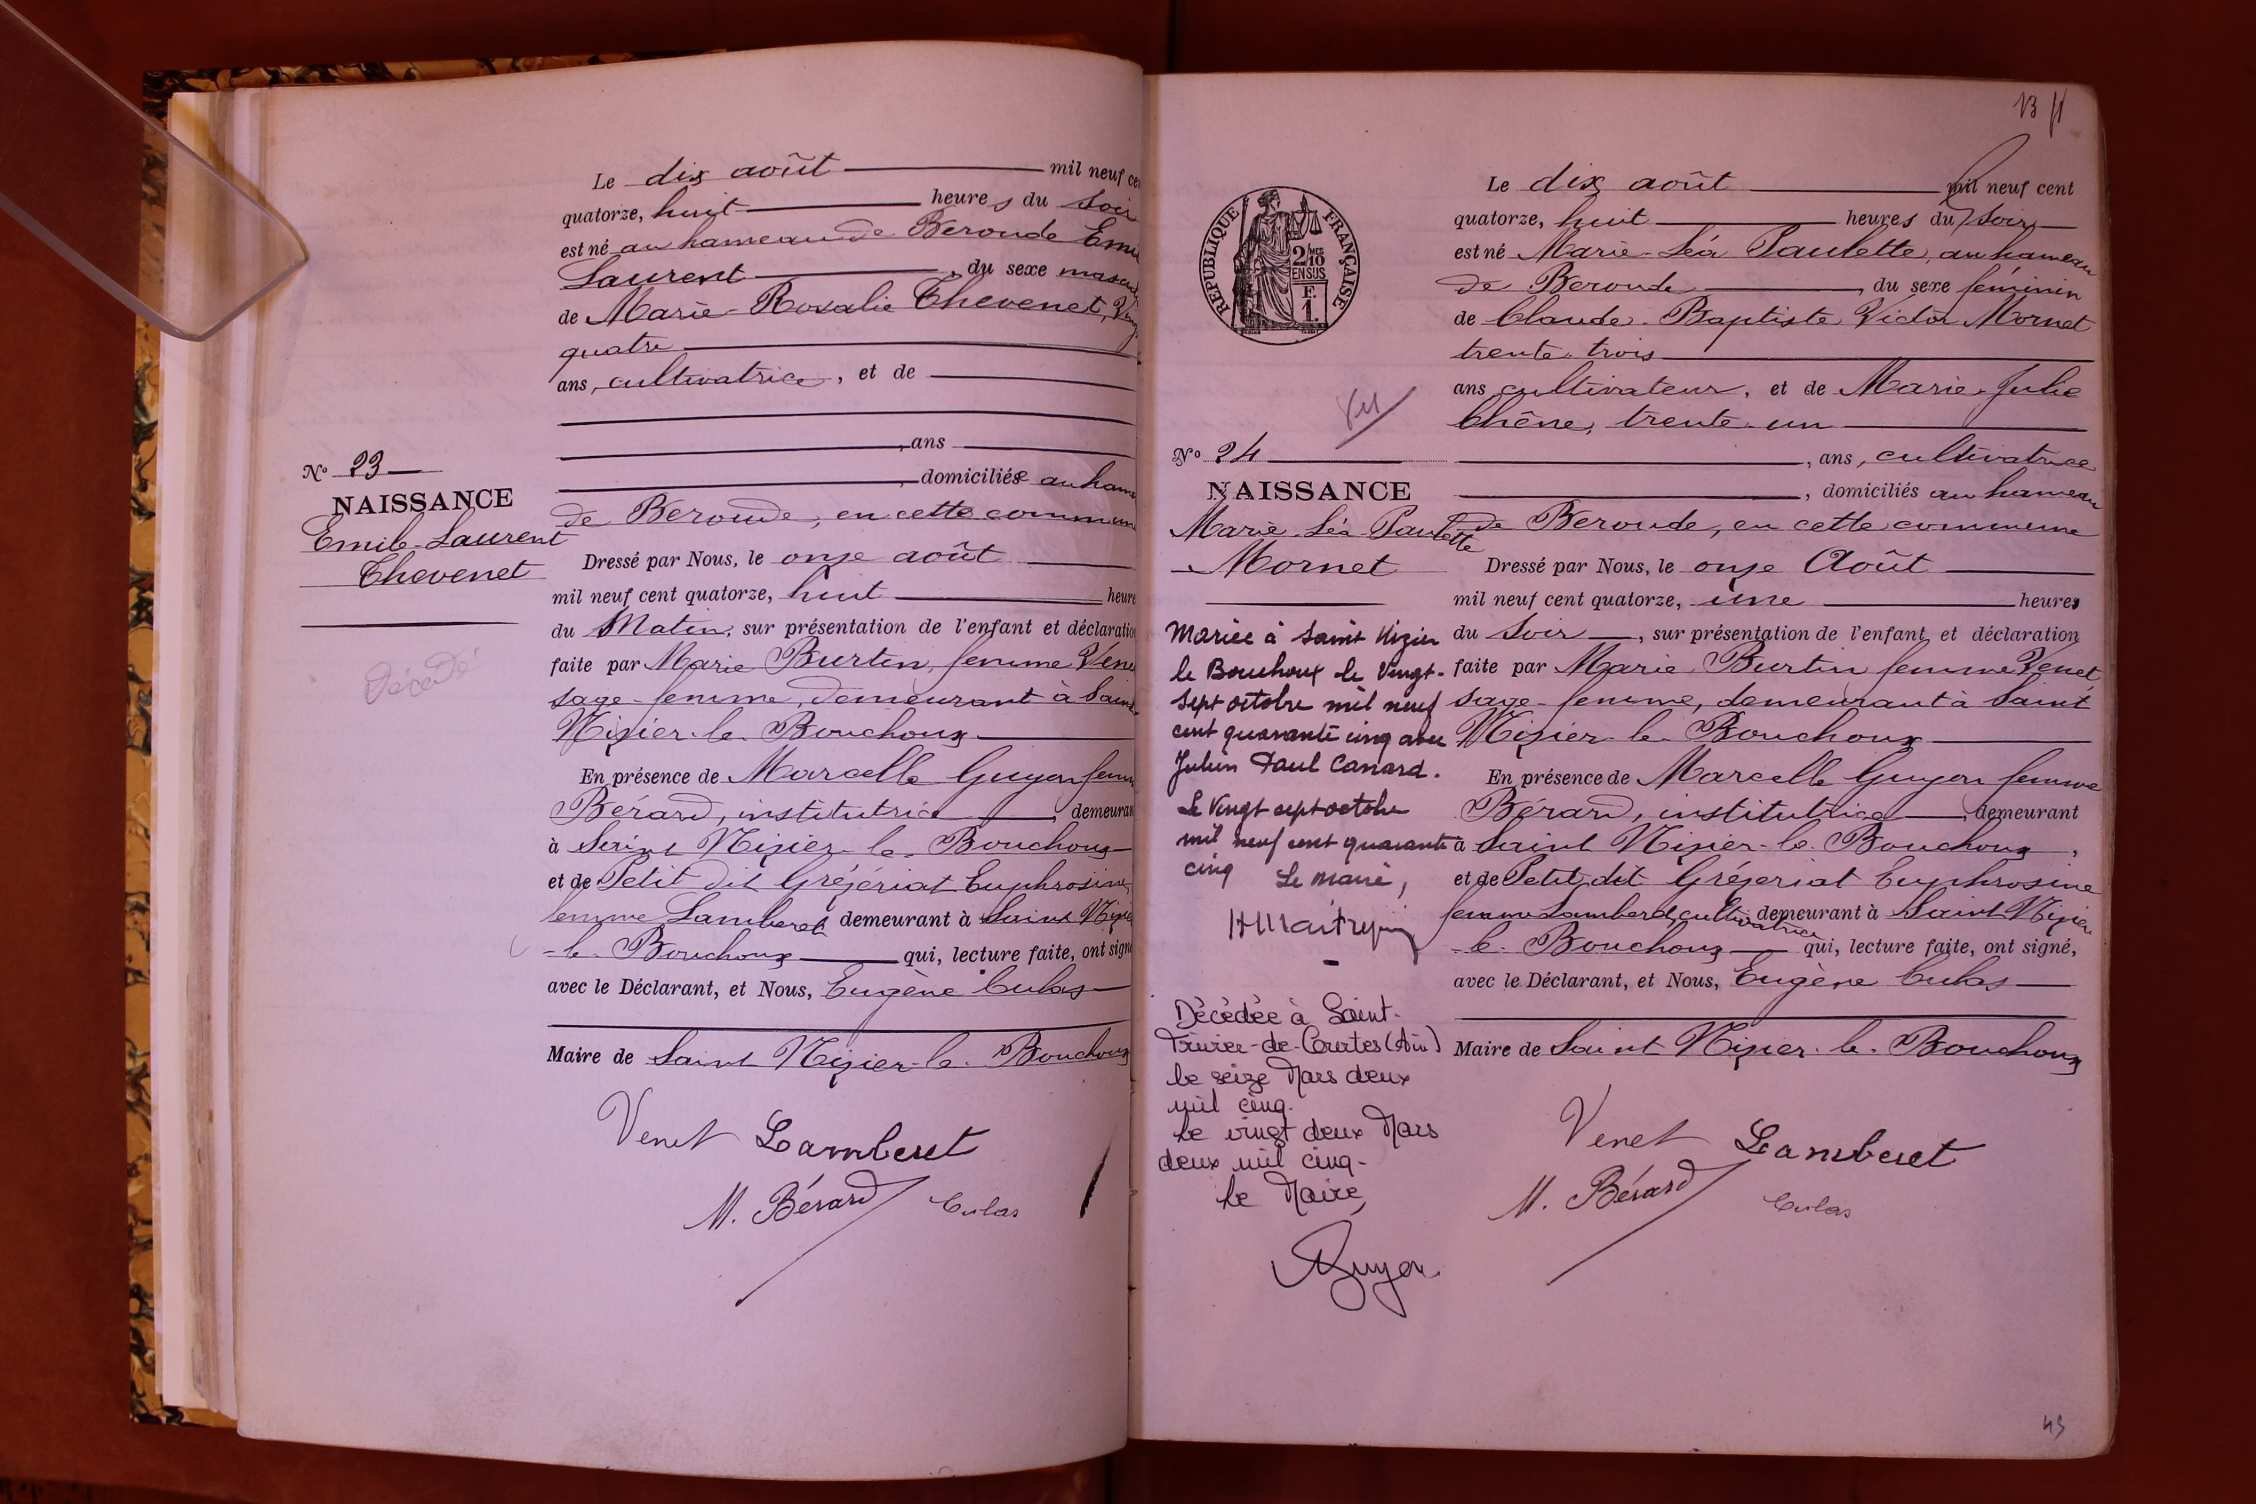 Le dix août mil neuf cen
quatorze, huit heures du soir
est né au hameau de Beroude Emi
Laurent , du sexe mascu
de Marie-Rosalie Thevenet, Ving
quatre
ans, cultivatrice, et de
, ans
, domiciliée au hame
de Beroude, en cette commune
Dressé par Nous, le onze août
mil neuf cent quatorze, huit heure
du Matin, sur présentation de l'enfant et déclaratio
faite par Marie Burtin, femme Vene
sage-femme, demeurant à Saint
Nizier-le-Bouchoux
En présence de Marcelle Guyon fem
Bérard, institutrice , demeuran
à Saint Nizier-le-Bouchoux
et de Petit dit Gréjériat Euphrosine,
femme Lamberet demeurant à Saint Nizie
-le-Bouchoux qui, lecture faite, ont signé
avec le Déclarant, et Nous, Eugène Culas
Maire de Saint Nizier-le-Bouchoux
Venet Lamberet
M. Bérard Culas
No 23
NAISSANCE
Emile-Laurent
Thevenet
Décédé
13
RÉPUBLIQUE FRANÇAISE
2/10
EN SUS
F.
1.
Le dix août mil neuf cent
quatorze, huit heures du soir
est né Marie-Léa Paulette, au hameau
de Beroude , du sexe féminin
de Claude-Baptiste Victor Mornet
trente-trois
ans cultivateur, et de Marie-Julie
Chêne, trente-un
, ans, cultivatrice
, domiciliés au hameau
de Beroude, en cette commune
Dressé par Nous, le onze Août
mil neuf cent quatorze, une heures
du Soir , sur présentation de l'enfant et déclaration
faite par Marie Burtin femme Venet,
sage-femme, demeurant à Saint
Nizier-le-Bouchoux
En présence de Marcelle Guyon femme
Bérard, institutrice , demeurant
à Saint Nizier-le-Bouchoux ,
et de Petit dit Gréjeriat Euphrosine
femme Lamberet, cultivatrice demeurant à Saint Nizier
-le-Bouchoux qui, lecture faite, ont signé,
avec le Déclarant, et Nous, Eugène Culas
Maire de Saint Nizier-le-Bouchoux
Venet Lamberet
M. Bérard Culas
No 24
NAISSANCE
Marie-Léa-Paulette
Mornet
Mariée à Saint Nizier
le Bouchoux le Vingt-
sept octobre mil neuf
cent quarante cinq avec
Julien Paul Canard.
Le Vingt sept octobre
mil neuf cent quarante
cinq Le maire,
Décédée à Saint-
Trivier-de-Courtes (Ain)
le seize Mars deux
mil cinq.
le vingt deux Mars
deux mil cinq-
le Maire,
Guyon
43